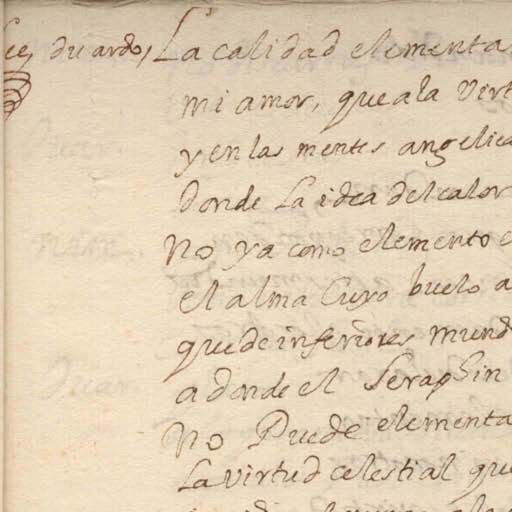 duardo, La calidad elementa
mi amor, que a la virt
y en las mentes angelica
donde la idea del calor
no ya como elemento e
el alma cuyo buelo a
que de inferiores mund
a donde el seraphin
no Puede elementa
la virtud celestial que